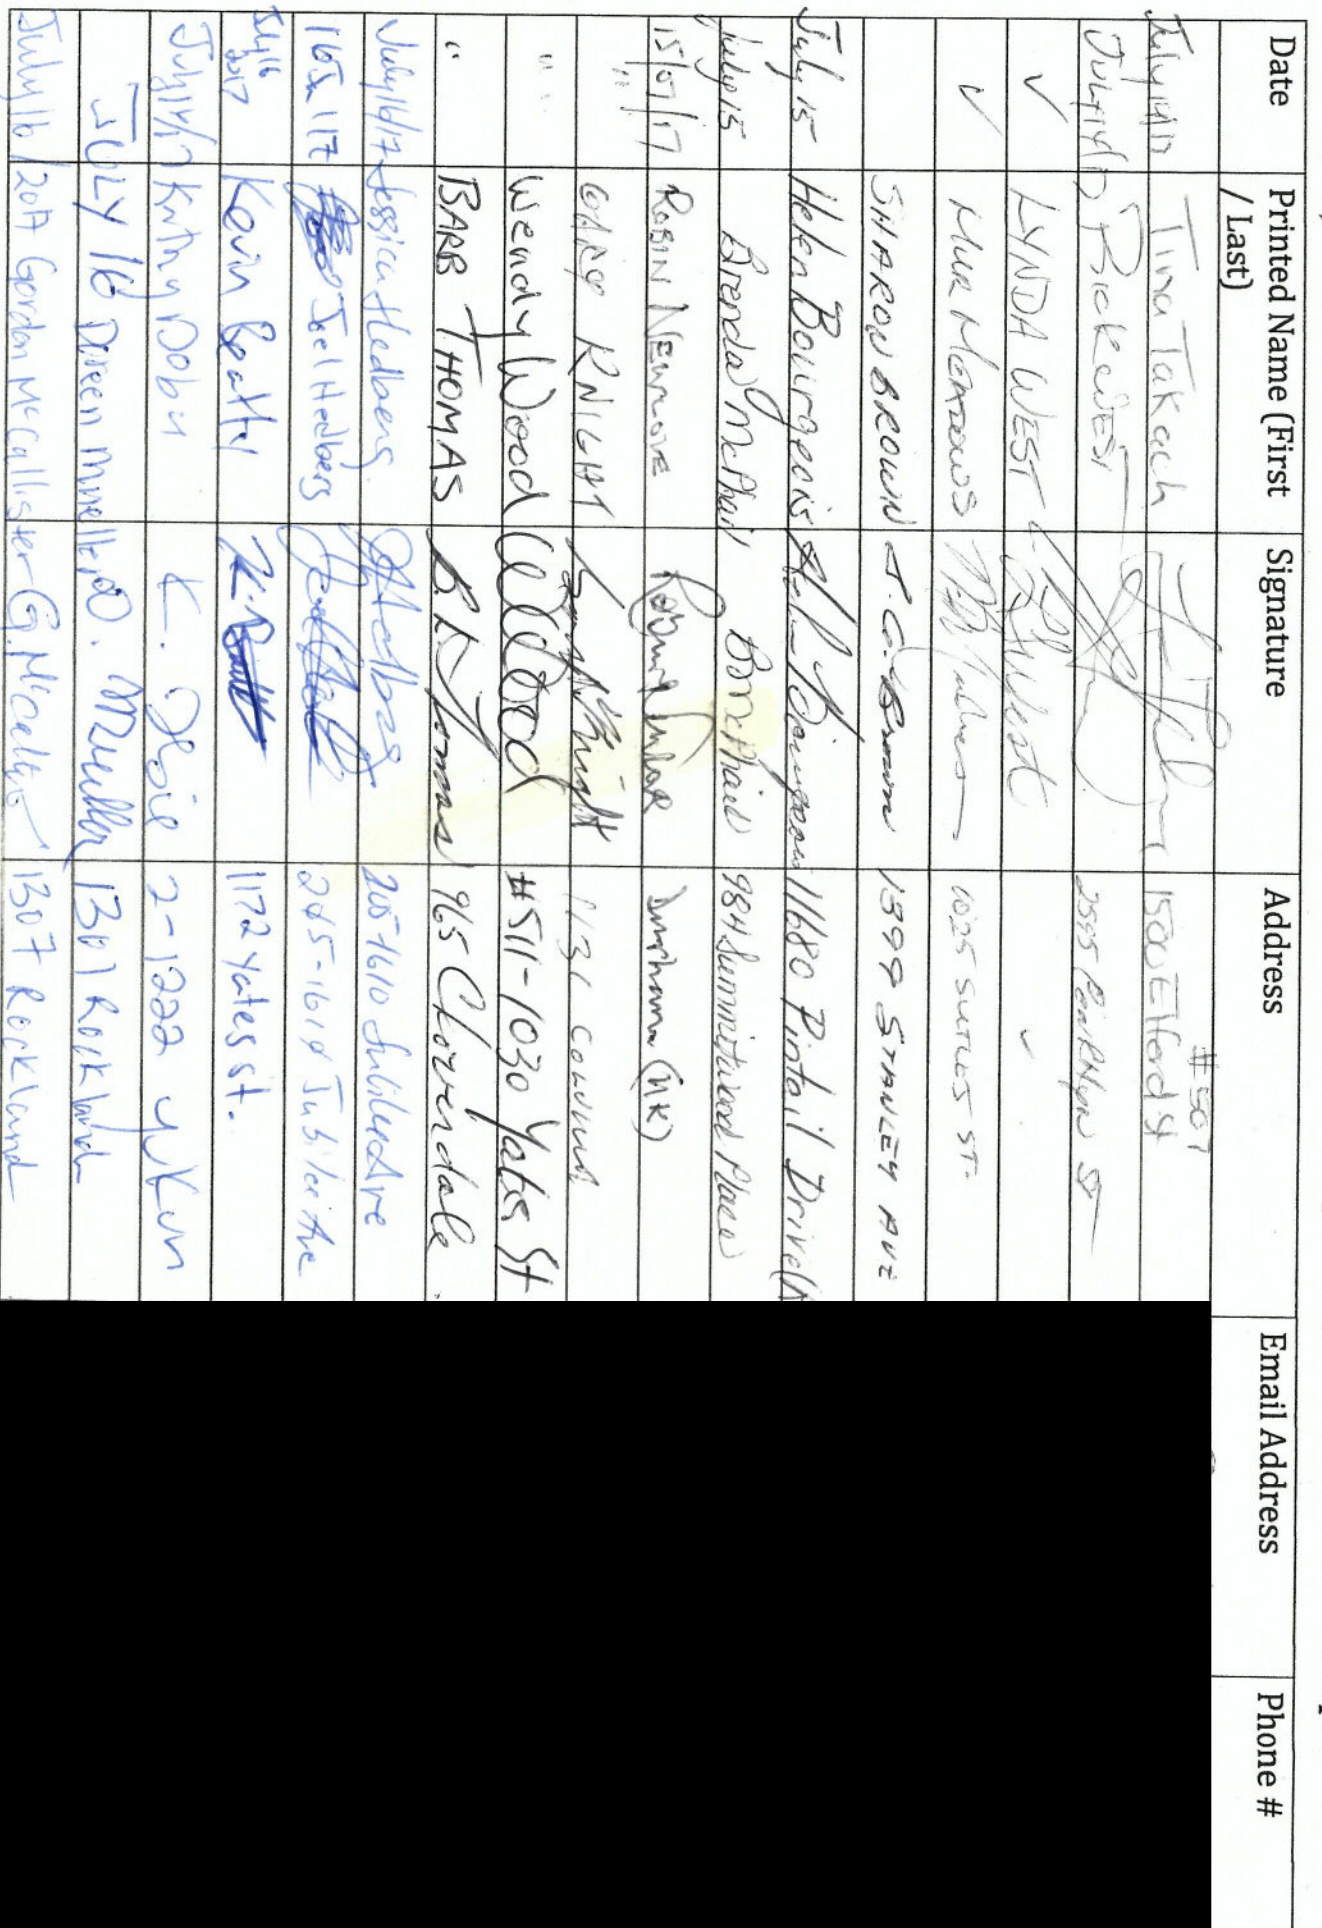 Date Printed Name (First / Last) Signature Address Email Address Phone #
July 14/17 Tina Takach #507 1500 Elford St
July 14/17 D Rick West 2595
✓ LYNDA WEST ✓
✓ MUR MEADOWS 1025 SUTLEJ ST.
SHARON BROWN S. C. Brown 1399 STANLEY AVE
July 15 Helen Bourgeois Helen Bourgeois 11680 Pintail Drive
July 15 Brenda McPhail B McPhail 984 Summitwood Place
15/07/17 ROBIN NEWMOVE Durham (UK)
" " KNIGHT 1131
" " Wendy Wood W Wood #511-1030 Yates St
" BARB THOMAS B. Thomas 965 Cloverdale
July 16/17 Jessica Hedberg J Hedberg 205-1610 Jubilee Ave
16 Jul 17 Joel Hedberg 205-1610 Jubilee Ave
July 16 2017 Kevin Beatty K. Beatty 1172 Yates st.
July 14/17 Kathy Dobie K. Dobie 2-1222
JULY 16 Doreen Mueller D. Mueller 1307 Rockland
July 16/2017 Gordon McCallister G. McCallister 1307 Rockland